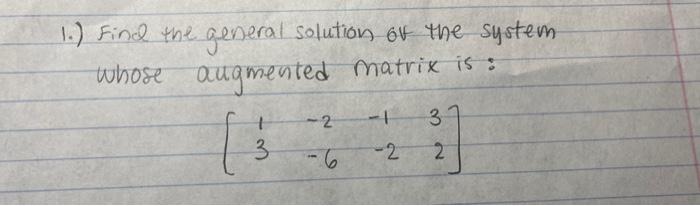 1.) Find the general solution of the system
whose augmented matrix is :
1 -2 -1 3
3 -6 -2 2